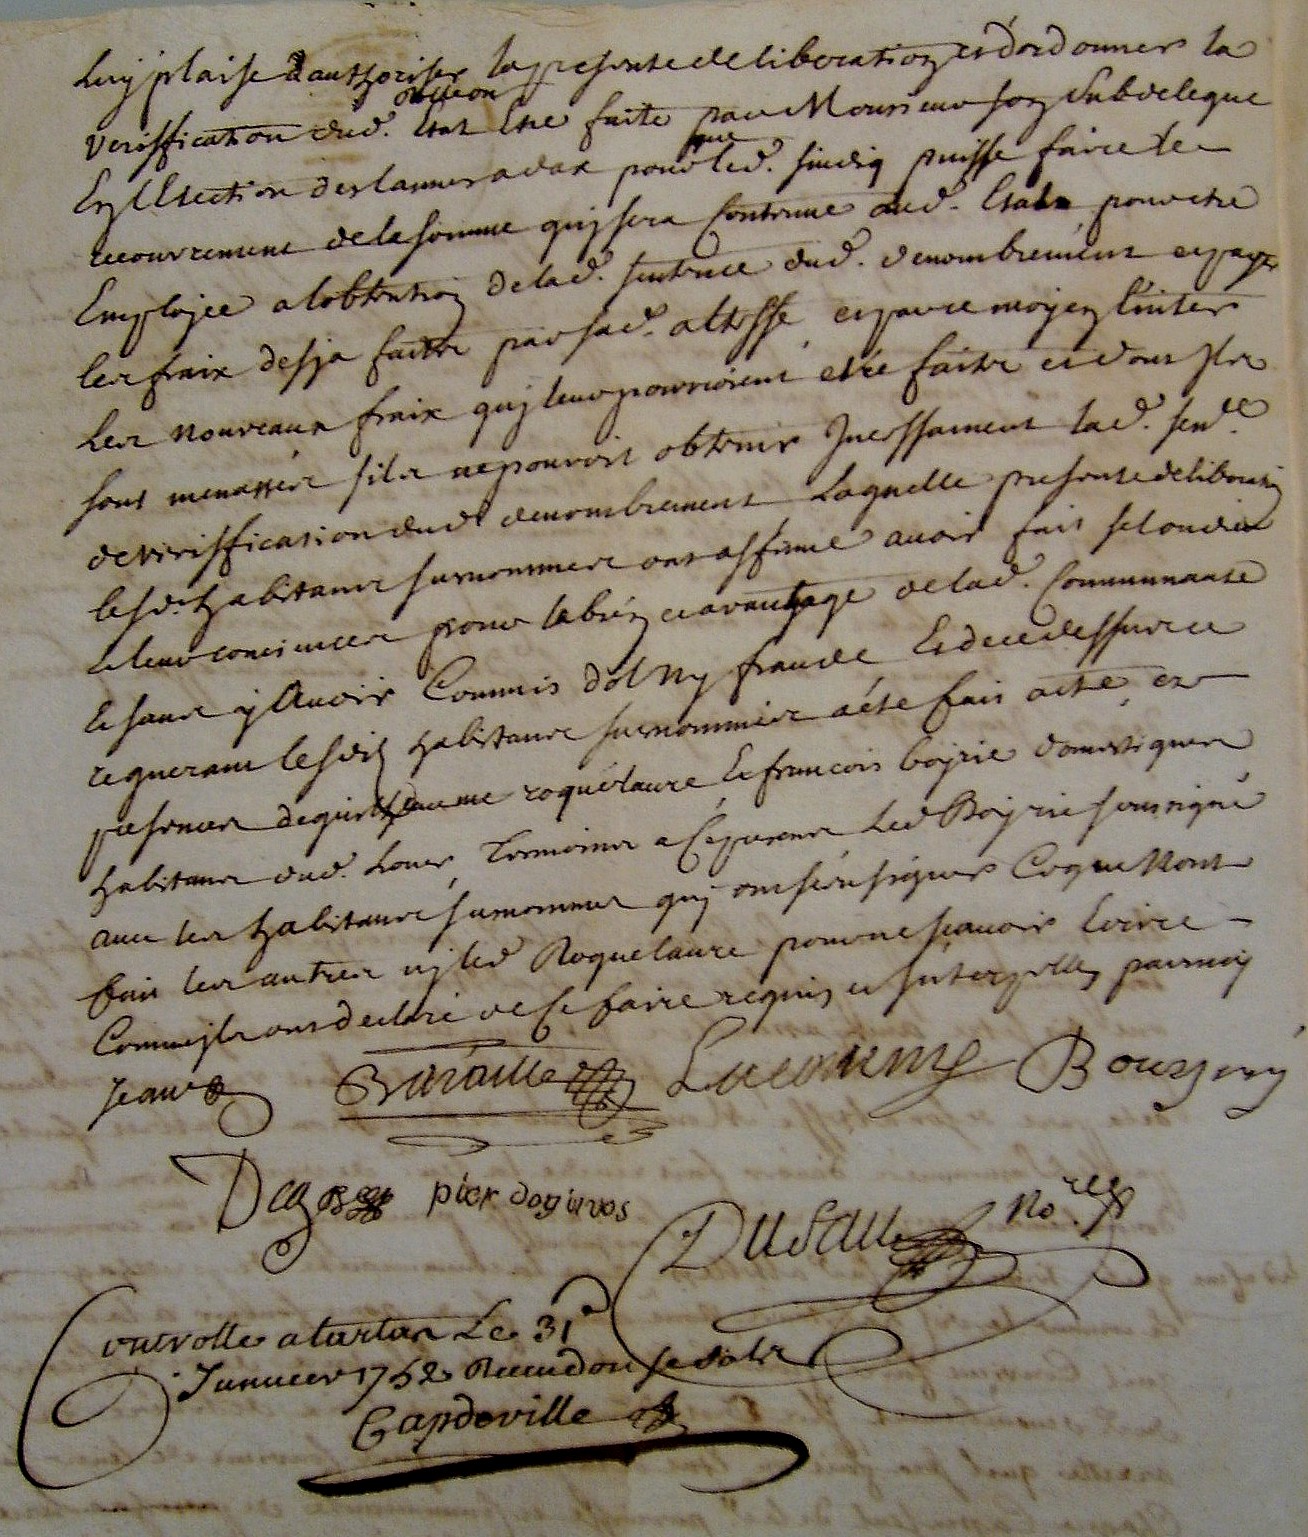 luy plaise d'authoriser la presente deliberation et d'ordonner la
veriffication dud. Estat Etre faite par Monsieur son Subdelegue
En l'Election des lannes a dax pour que led. sindiq puisse faire le
recouvrement de la somme quy sera Contenue aud. Estat pour etre
Employée a l'obtention de lad. sentence dud. denombrement et payer
les fraix desja faits par sad. altesse et par ce moyen eviter
les nouveaux fraix quy leur pourroient etre faits et dont ils
sont menassés sils ne pouvoit obtenir Incessament lad. sen.ce
de veriffication dud. denombrement Laquelle presente deliberation
lesd. habitants surnommes ont affirmé avoir fait selon dieu
et leur consciences pour le bien et avantage de lad. Communauté
Et sans y Avoir Commis dol ny fraude Et de ce dessus ce
requerant lesdits habitants surnommés a été fait acte, en
presence de guilhaume roquelaure Et francois bojrie domestiques
habitans dud. lieu, temoins a Ce presens Led Bojrie soussigné
avec les habitants surnommes quj ont sceu signer Ce que Nont
fait les autres nj led Roquelaure pour ne scavoir Ecrire
Comme ils ont declaré de Ce faire requis et Interpellés par moy
Bataille Lucomme
Degos
Dusau No.re
Controlle a tartas Le 31e
Janvier 1762 Recu douse sols
Capdeville